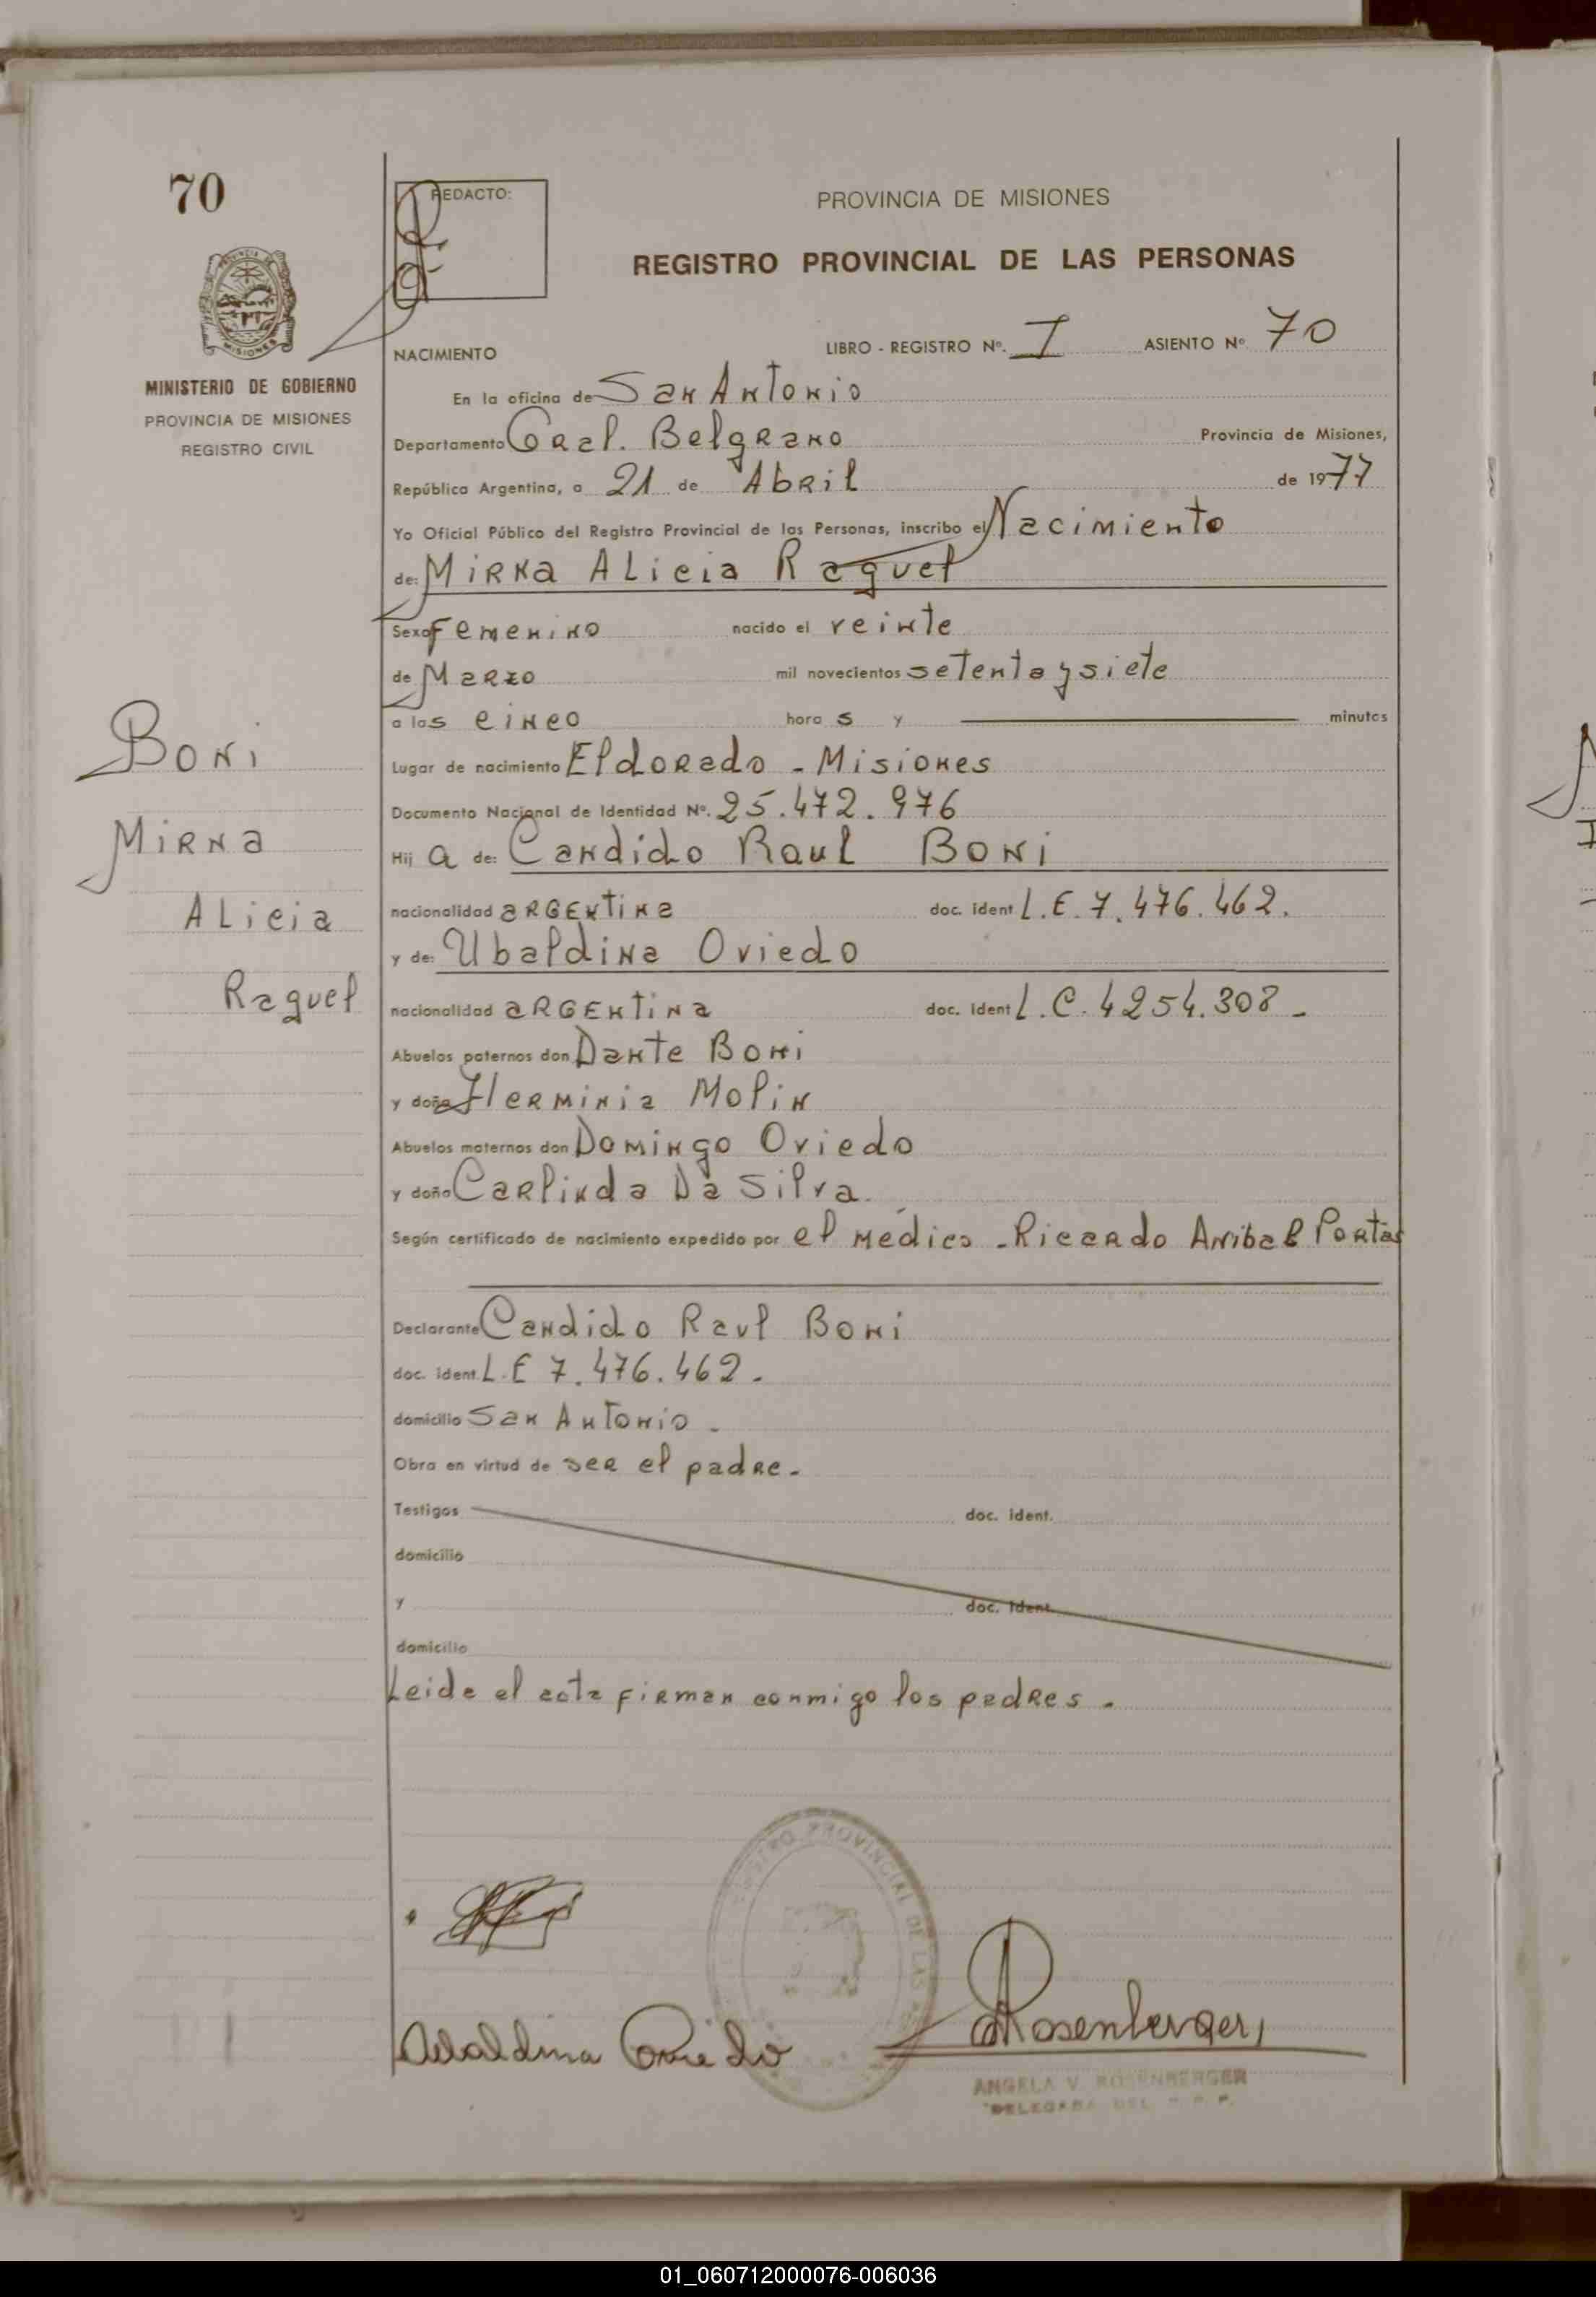 70
REDACTO:
PROVINCIA DE MISIONES
REGISTRO PROVINCIAL DE LAS PERSONAS
MISIONES
MINISTERIO DE GOBIERNO
PROVINCIA DE MISIONES
REGISTRO CIVIL
NACIMIENTO LIBRO - REGISTRO Nº. I ASIENTO Nº 70
En la oficina de San Antonio
Departamento Gral. Belgrano Provincia de Misiones,
República Argentina, a 21 de Abril de 1977
Yo Oficial Público del Registro Provincial de las Personas, inscribo el Nacimiento
de: Mirna Alicia Raquel
Sexo Femenino nacido el veinte
de Marzo mil novecientos setenta y siete
a las cinco hora s y minutos
Lugar de nacimiento Eldorado - Misiones
Documento Nacional de Identidad Nº. 25.472.976
Hij a de: Candido Raul Boni
nacionalidad argentina doc. ident L.E. 7.476.462.
y de: Ubaldina Oviedo
nacionalidad argentina doc. ident L.C. 4254.308 -
Abuelos paternos don Dante Boni
y doña Herminia Molin
Abuelos maternos don Domingo Oviedo
y doña Carlinda Da Silva.
Según certificado de nacimiento expedido por el Médico - Ricardo Anibal Portas
Declarante Candido Raul Boni
doc. ident. L.E 7.476.462 -
domicilio San Antonio -
Obra en virtud de ser el padre -
Testigos doc. ident.
domicilio
y doc. ident.
domicilio
Leida el acta firman conmigo los padres -
Boni
Mirna
Alicia
Raquel
REGISTRO PROVINCIAL DE LAS
Ubaldina Oviedo
Rosenberger
ANGELA V. ROSENBERGER
DELEGADA DEL R. P. P.
01_060712000076-006036